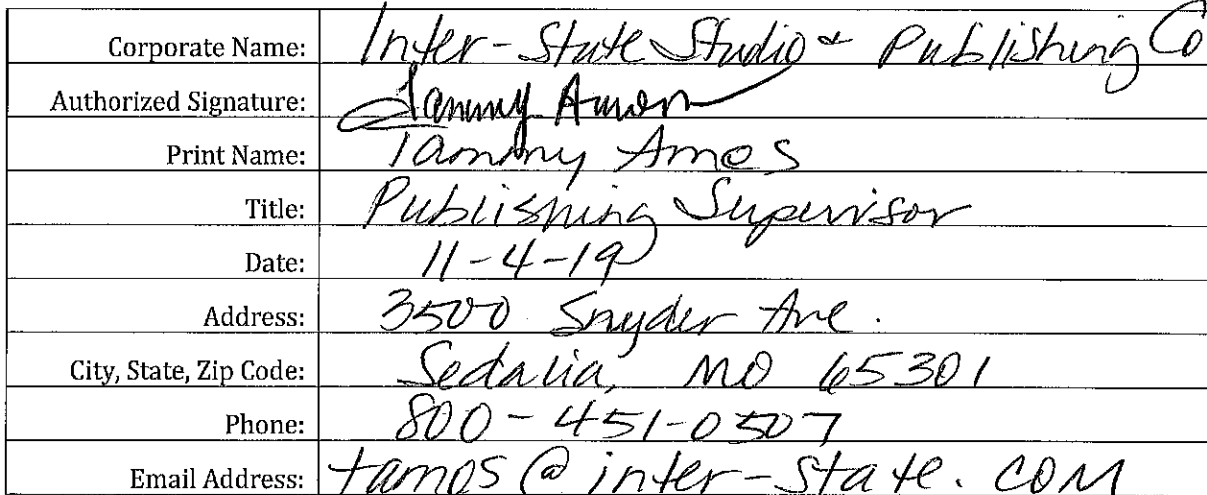 Corporate Name: Inter-State Studio & Publishing Co
Authorized Signature: Tammy Amos
Print Name: Tammy Amos
Title: Publishing Supervisor
Date: 11-4-19
Address: 3500 Snyder Ave.
City, State, Zip Code: Sedalia, MO 65301
Phone: 800-451-0507
Email Address: tamos@inter-state.com